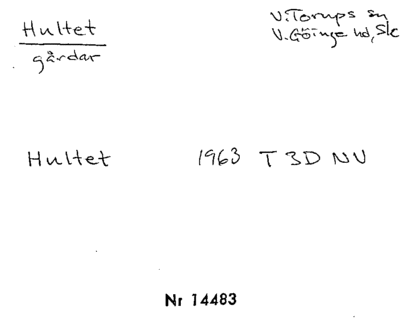 Hultet
gårdar
V. Torups sn
V. Göinge hd, Sk
Hultet 1963 T 3D NV
Nr 14483